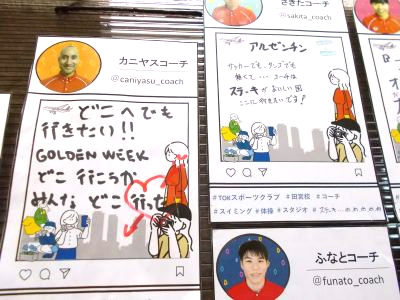 カニヤスコーチ
@caniyasu_coach
どこへでも
行きたい!!
GOLDEN WEEK
どこ 行こうか
みんな どこ 行った
さきたコーチ
@sakita_coach
アルゼンチン
サッカーでも、タンゴでも
無くて... コーチは
ステーキがおいしい国
ここに行きたいです!
#TOKスポーツクラブ #田宮校 #コーチ
#スイミング #体操 #スタジオ
ふなとコーチ
@funato_coach